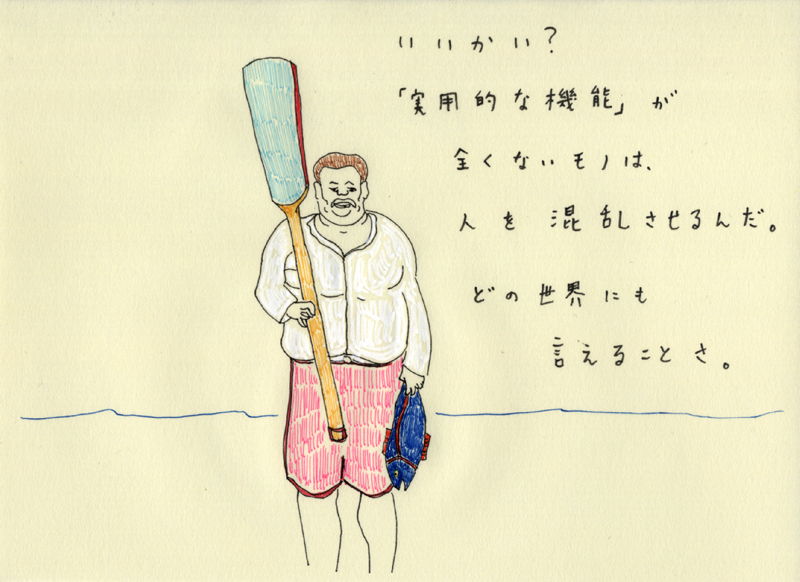 いいかい?
「実用的な機能」が
全くないモノは、
人を混乱させるんだ。
どの世界にも
言えることさ。